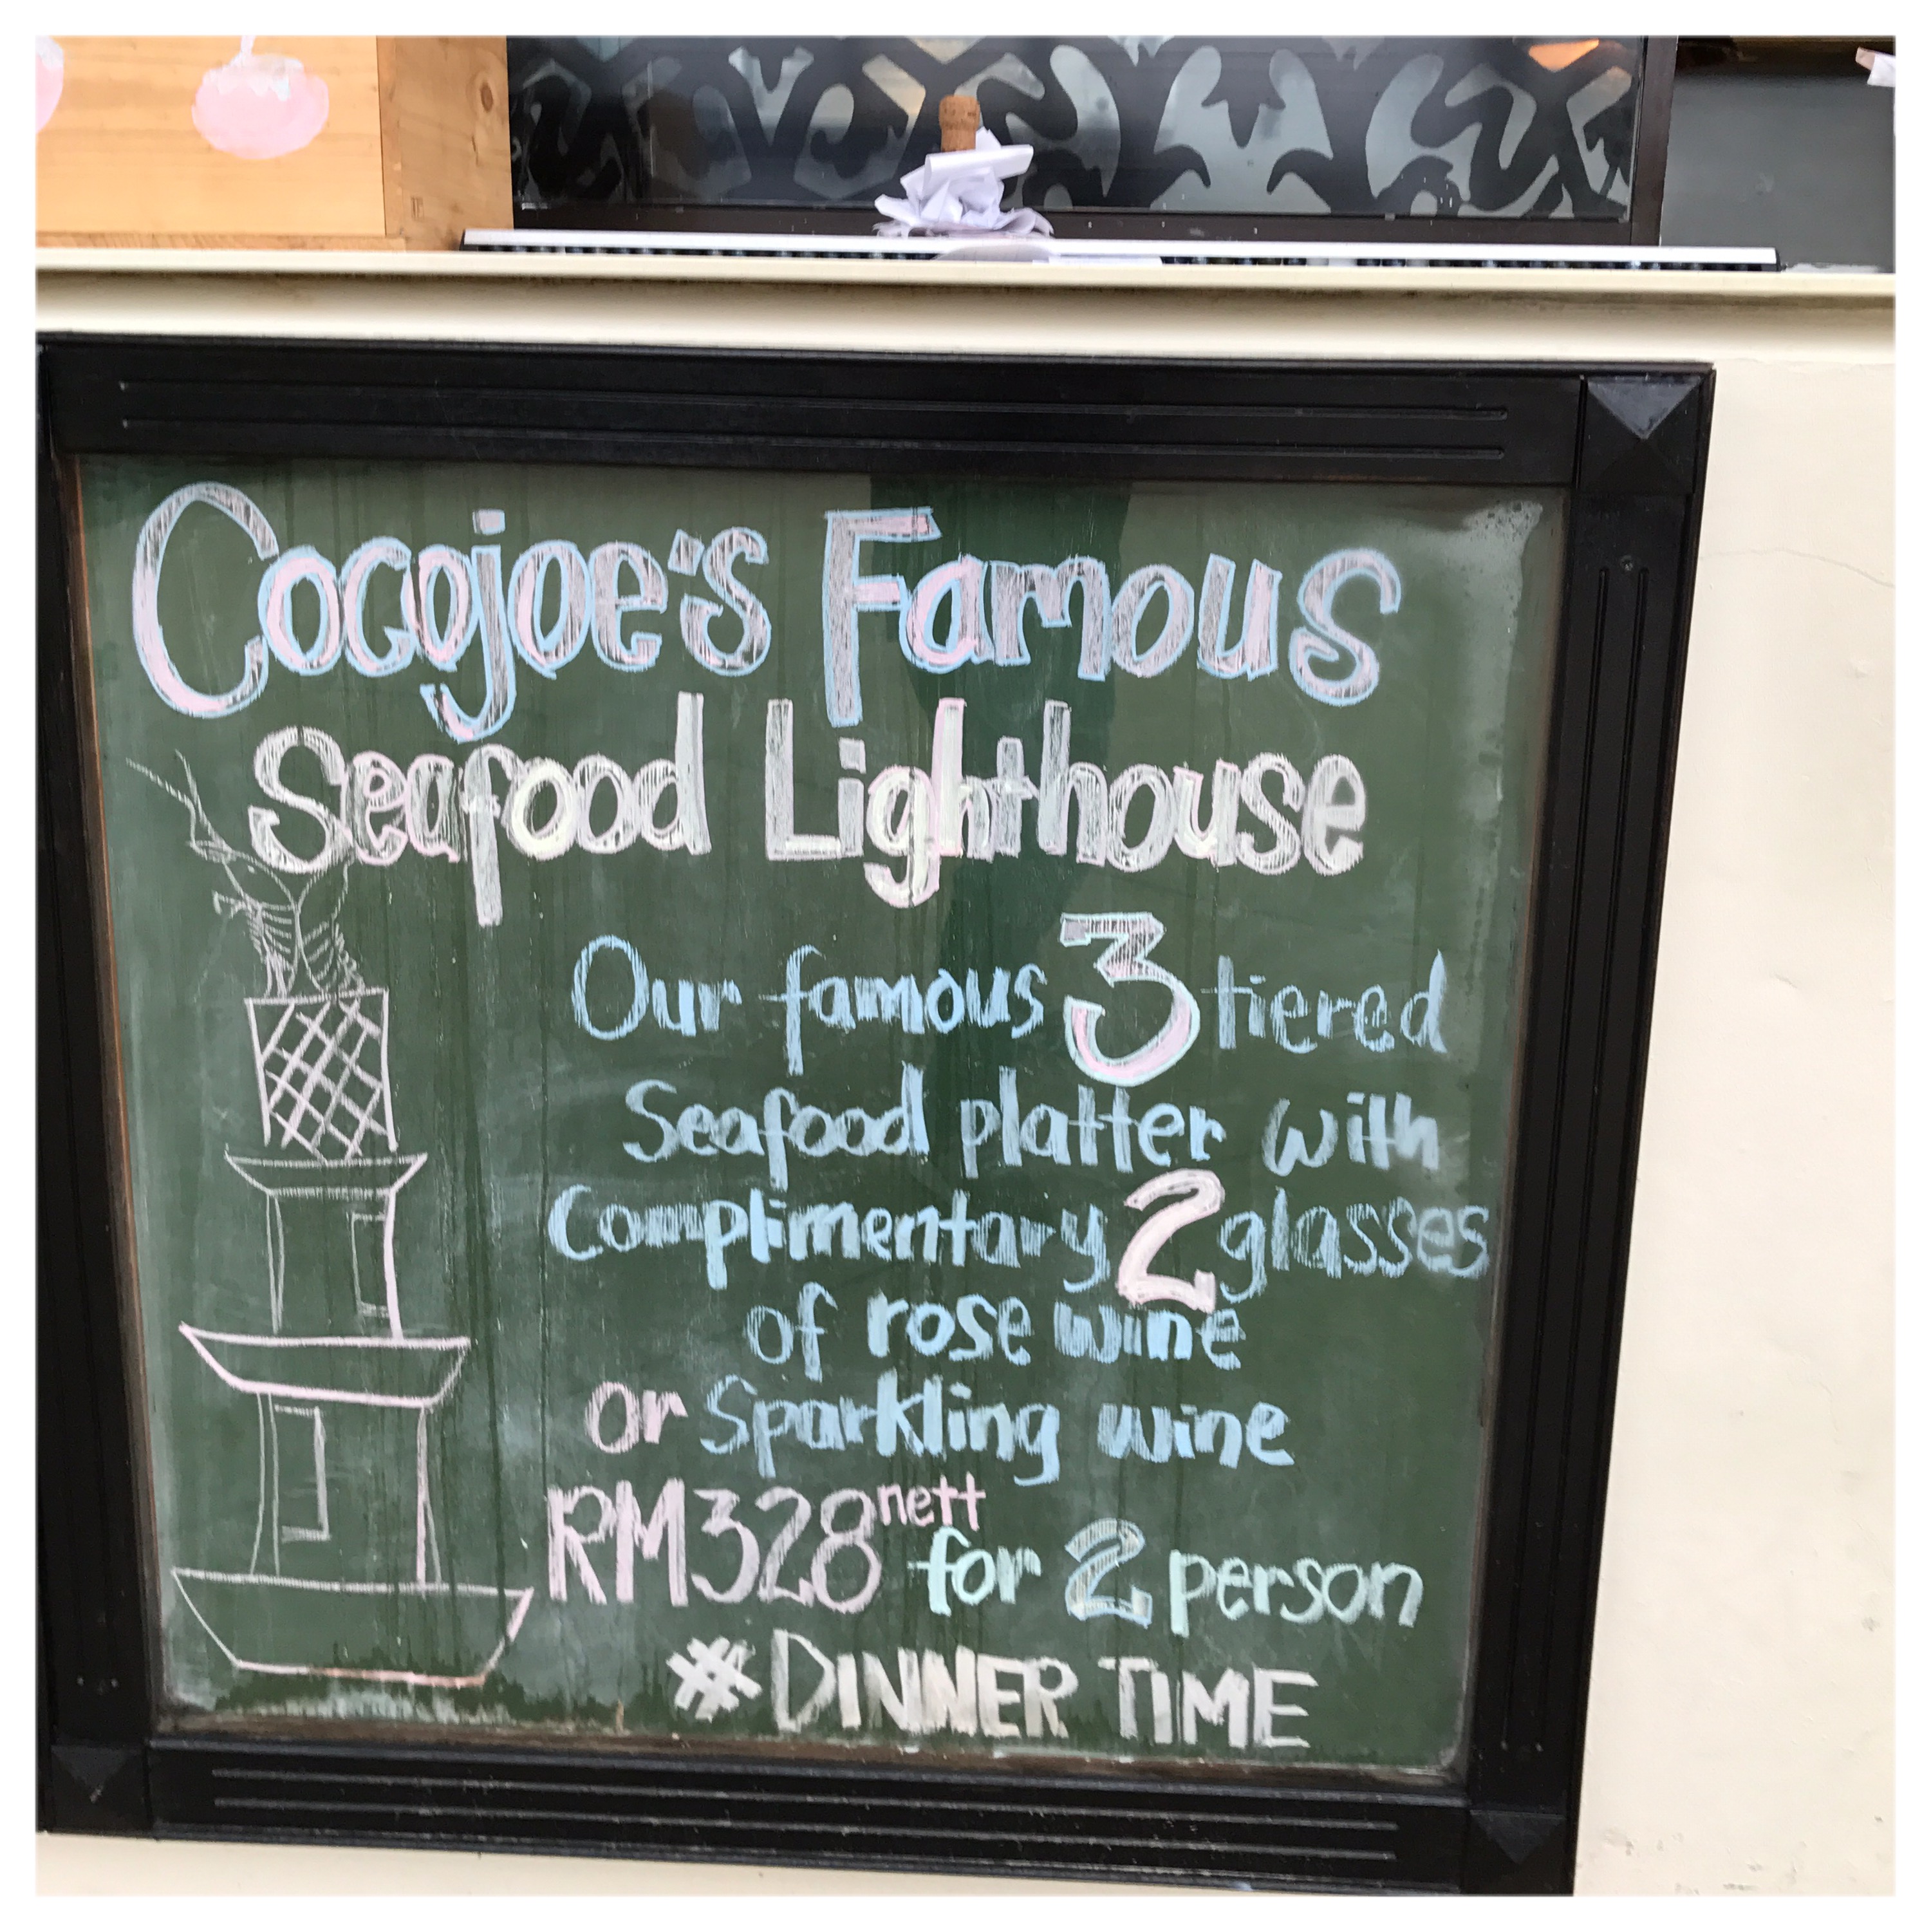 Cocojoe's Famous
Seafood Lighthouse
Our famous 3 tiered
Seafood platter with
Complimentary 2 glasses
of rose wine
or Sparkling wine
RM328 nett for 2 person
#DINNER TIME